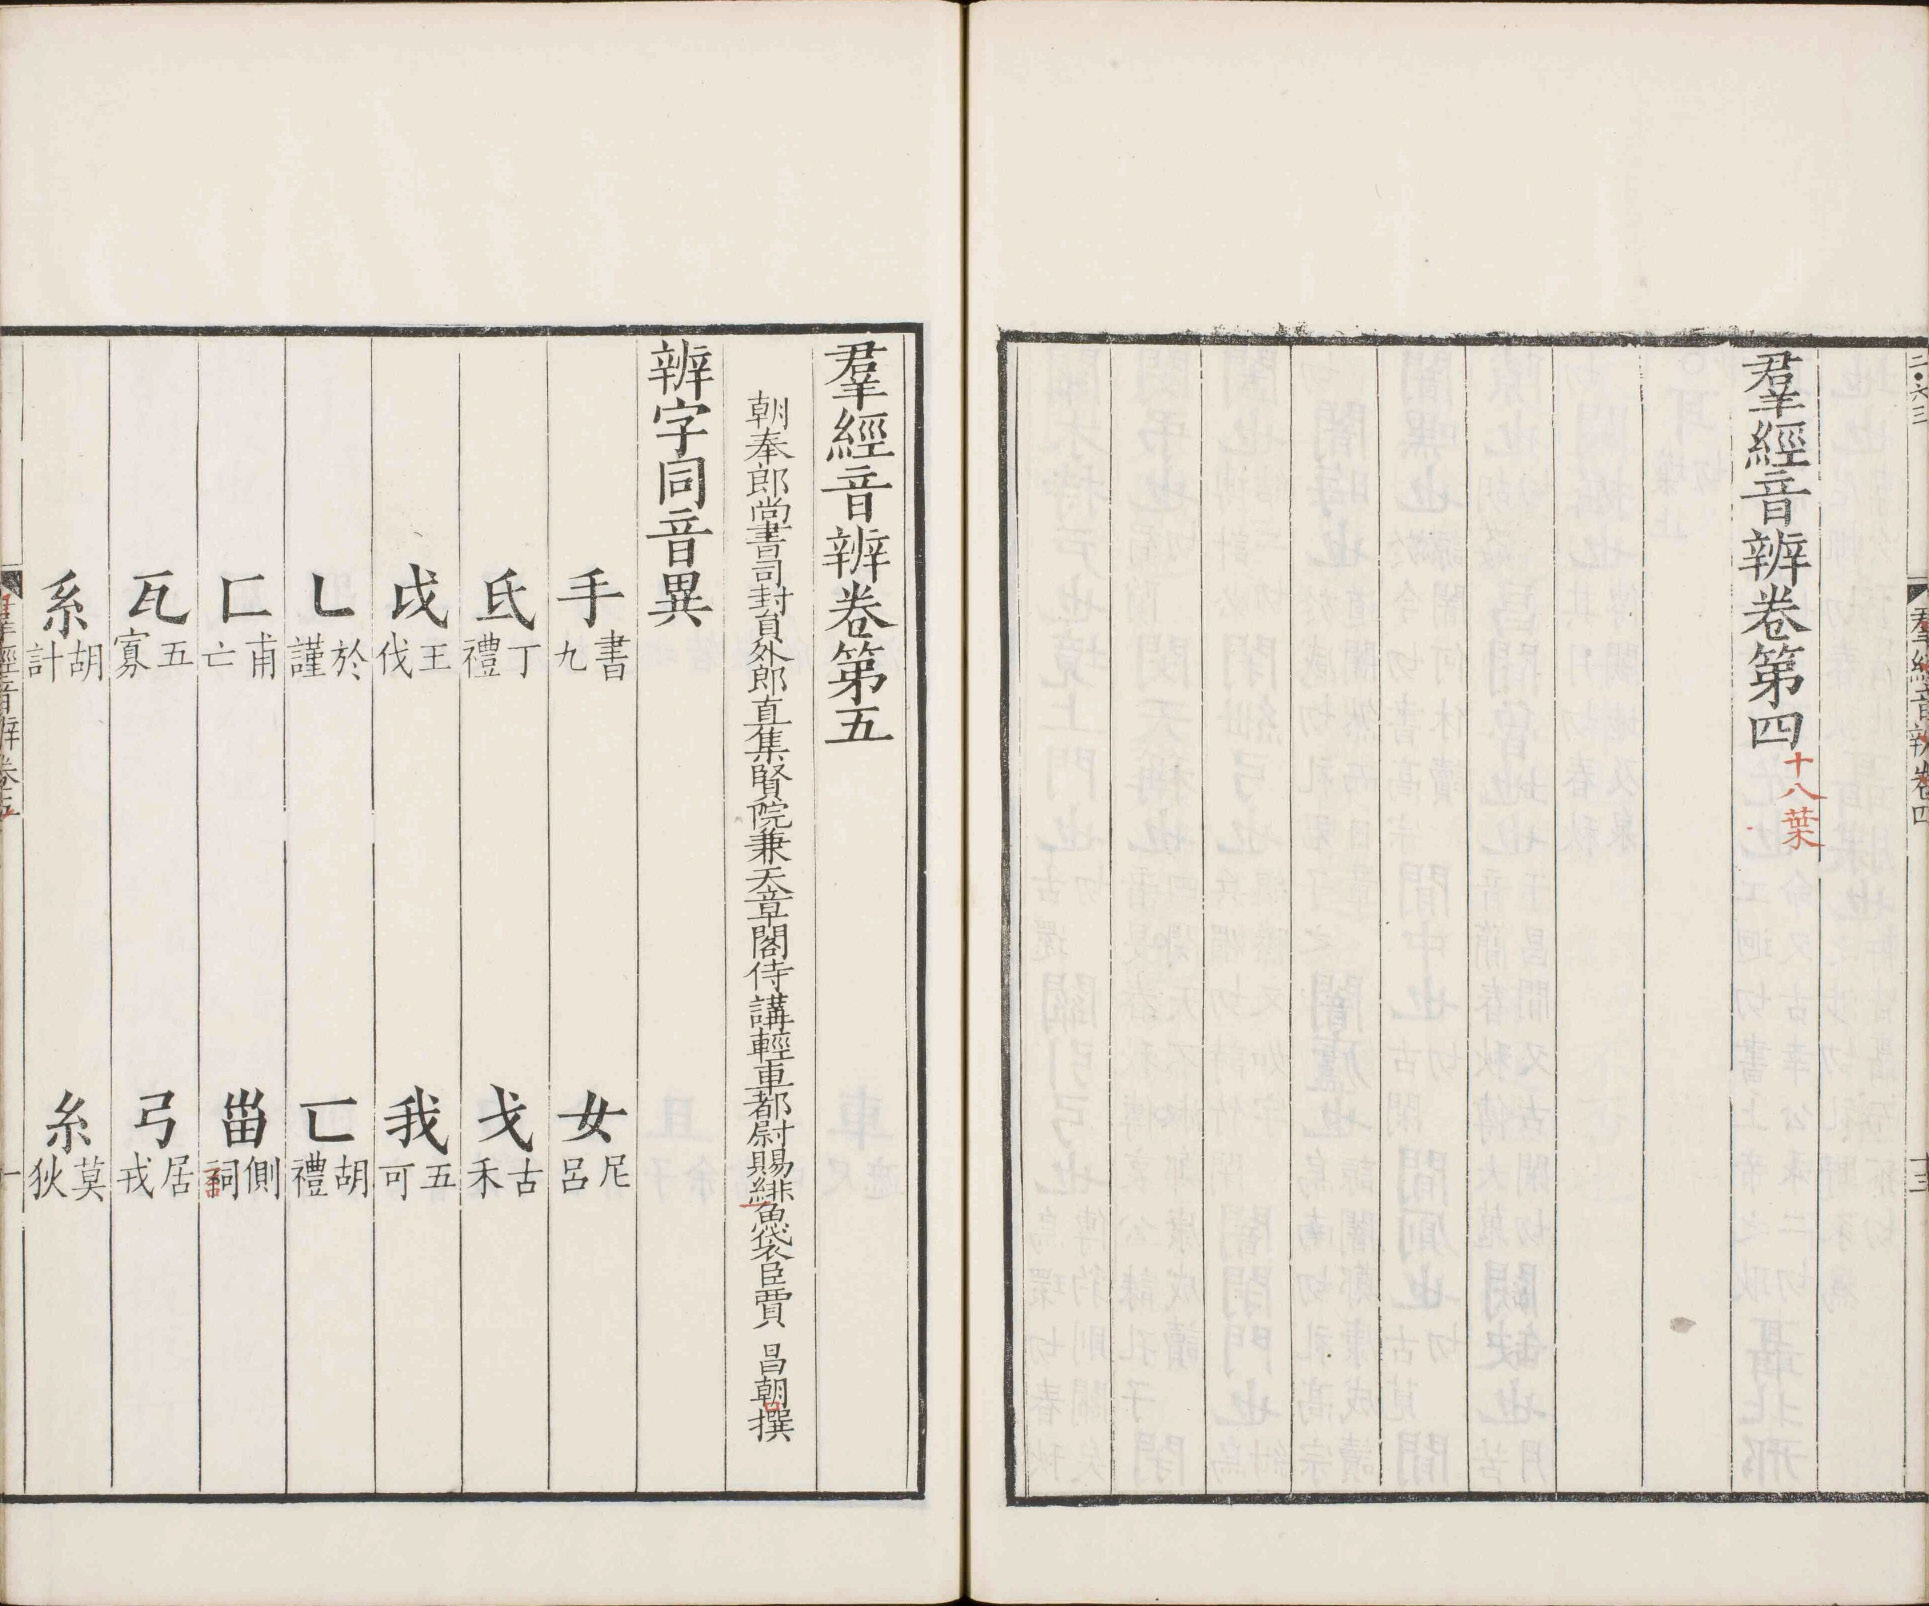 羣經音辨卷第四
十八葉
羣經音辨卷四
羣經音辨卷第五
朝奉郎尚書司封員外郎直集賢院兼天章閣侍講輕車都尉賜緋魚袋臣賈 昌朝撰
辨字同音異
手書九 女尼呂
氐丁禮 戈古禾
戉王伐 我五可
乚於謹 匸胡禮
匚甫亡 甾側祠
瓦五寡 弓居戎
系胡計 糸莫狄
羣經音辨卷五 一